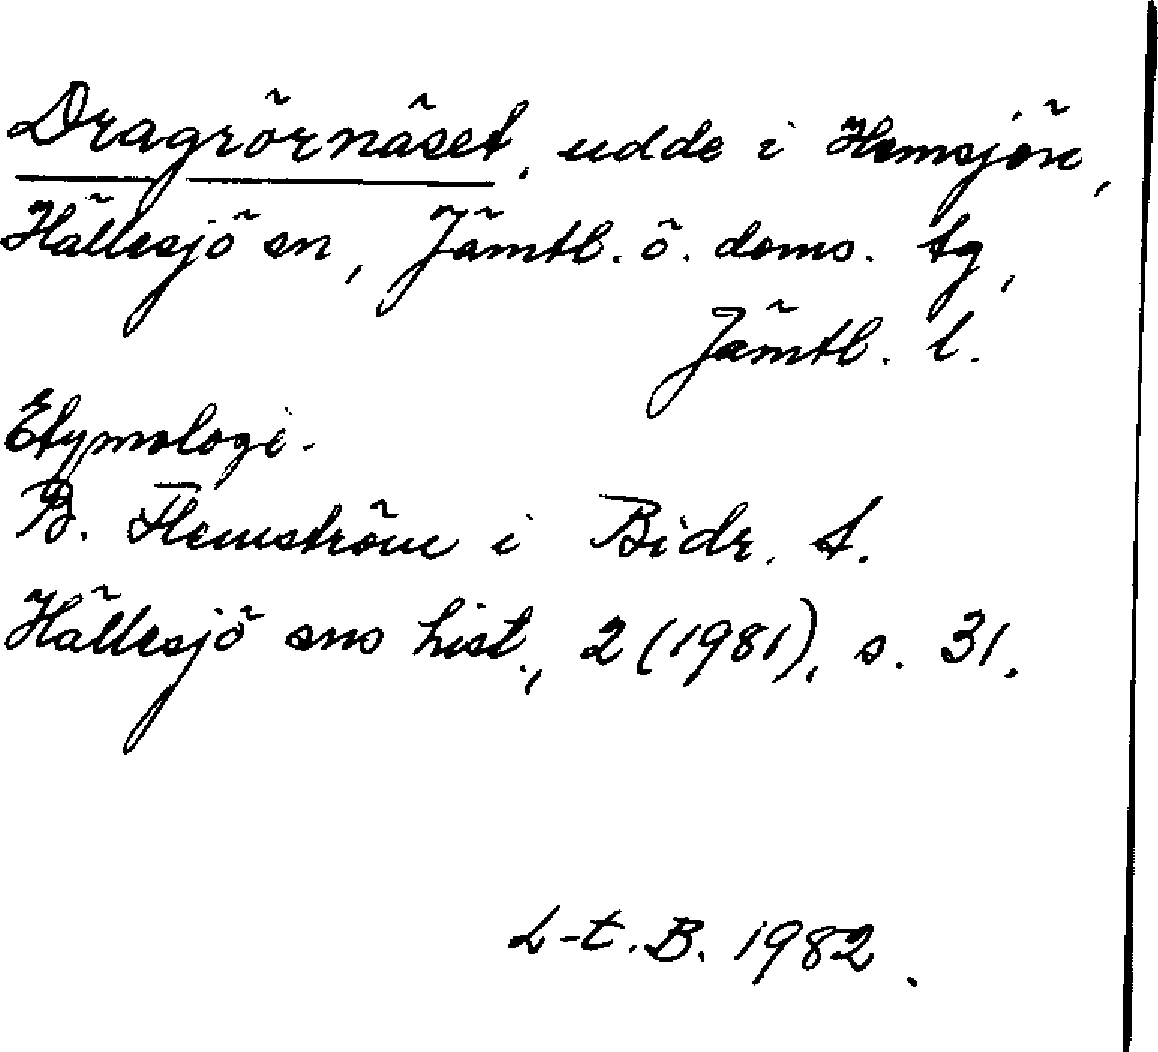 Dragrörnäset, udde i Hemsjön,
Hällesjö sn, Jämtl. ö. doms. tg,
Jämtl. l.
Etymologi.
B. Flemström i Bidr. t.
Hällesjö sns hist., 2 (1981), s. 31.
L-t. B. 1982.